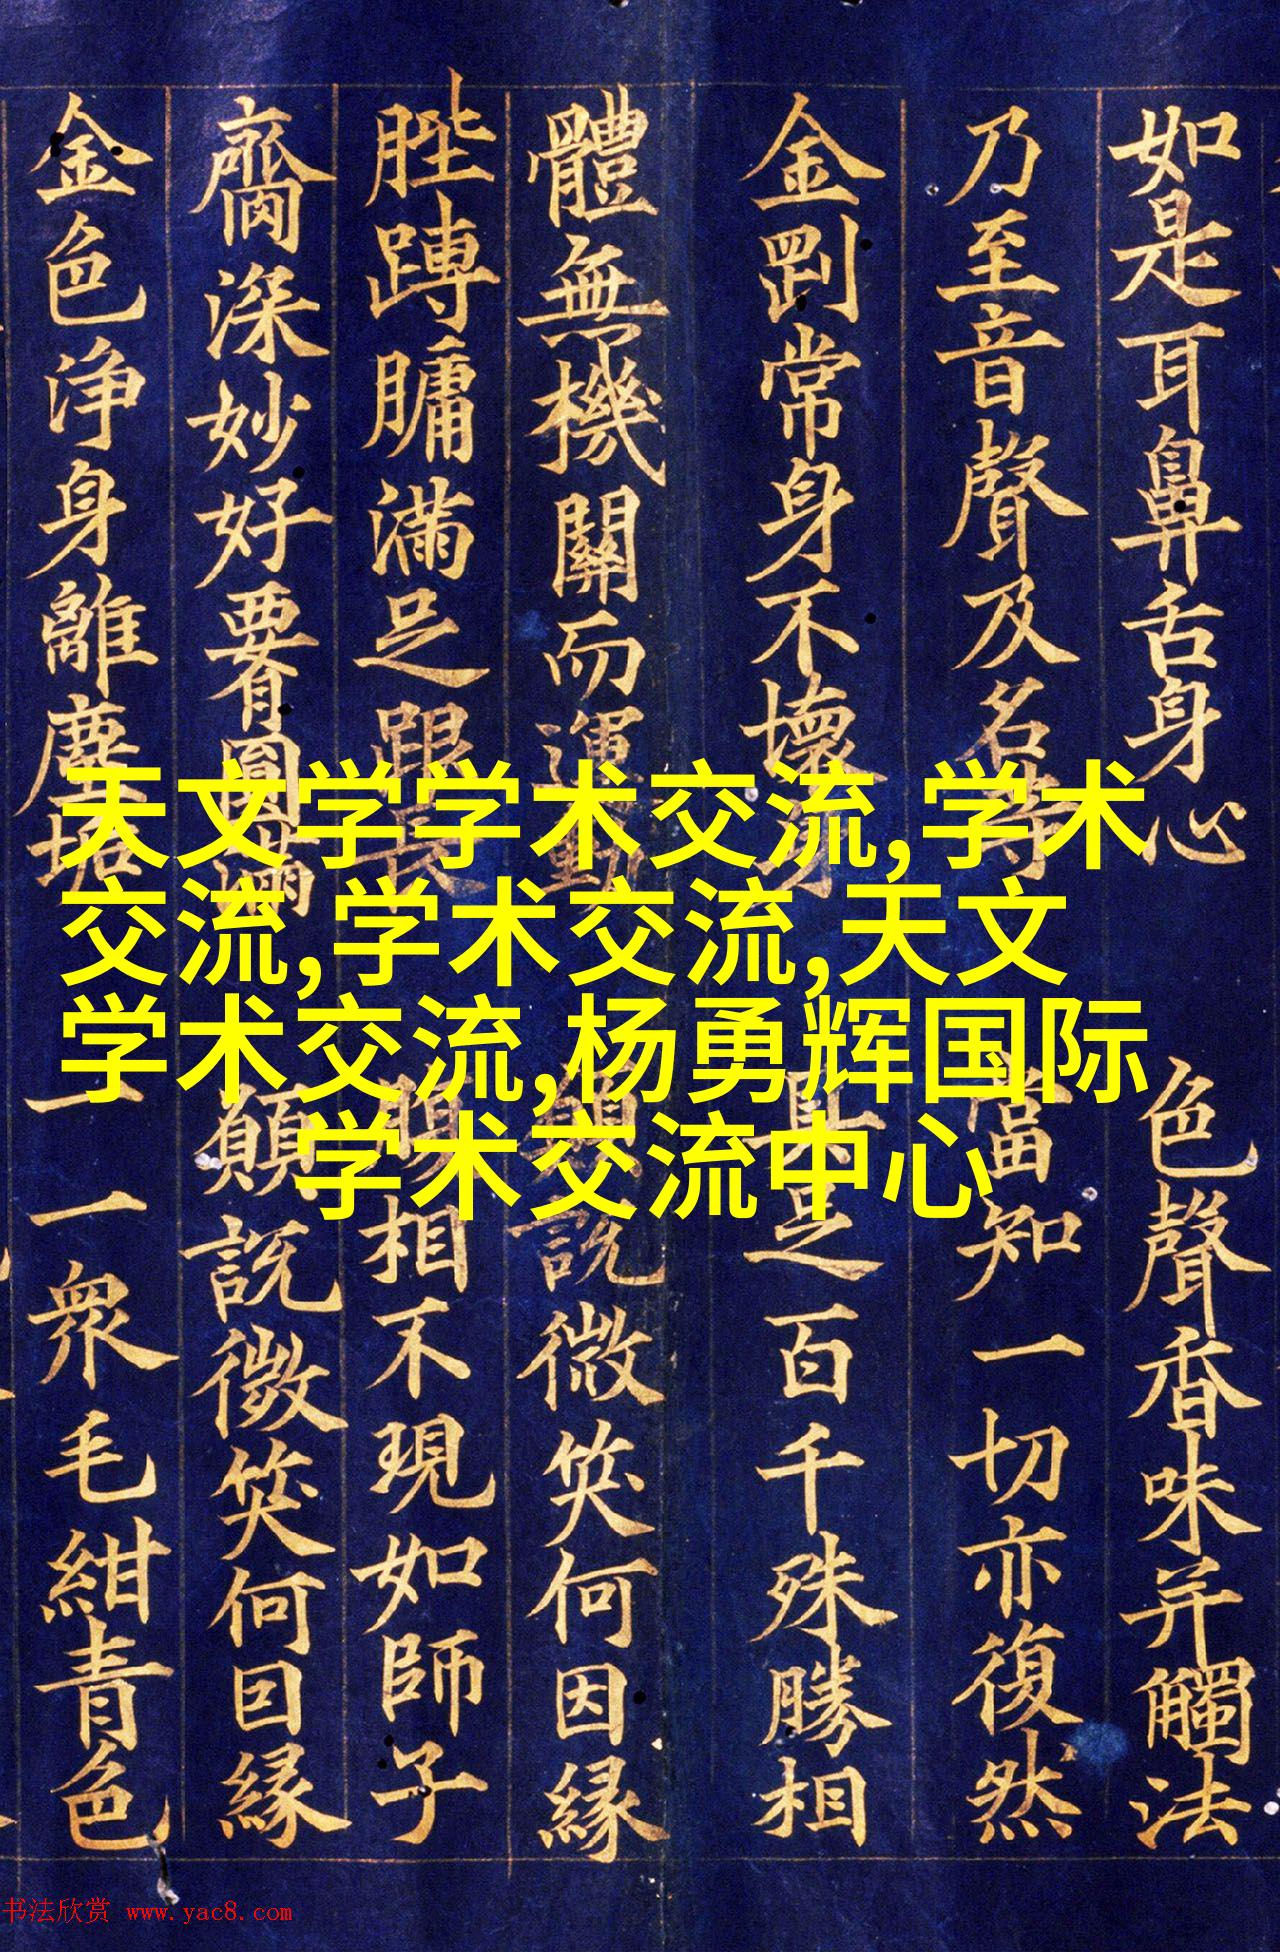 如是耳鼻舌身心 色聲香味并觸法
乃至音聲及名 當知一切亦復然
金剛常身不壞身 具足百千殊勝相
體無機關而運動 願說微笑何因緣
滿足跟長 相不現如師子
深妙好圓滿 願說微笑何因緣
金色淨身離塵垢 一一眾毛紺青色
天文学学术交流,学术
交流,学术交流,天文
学术交流,杨勇辉国际
学术交流中心
书法欣赏 www.yac8.com